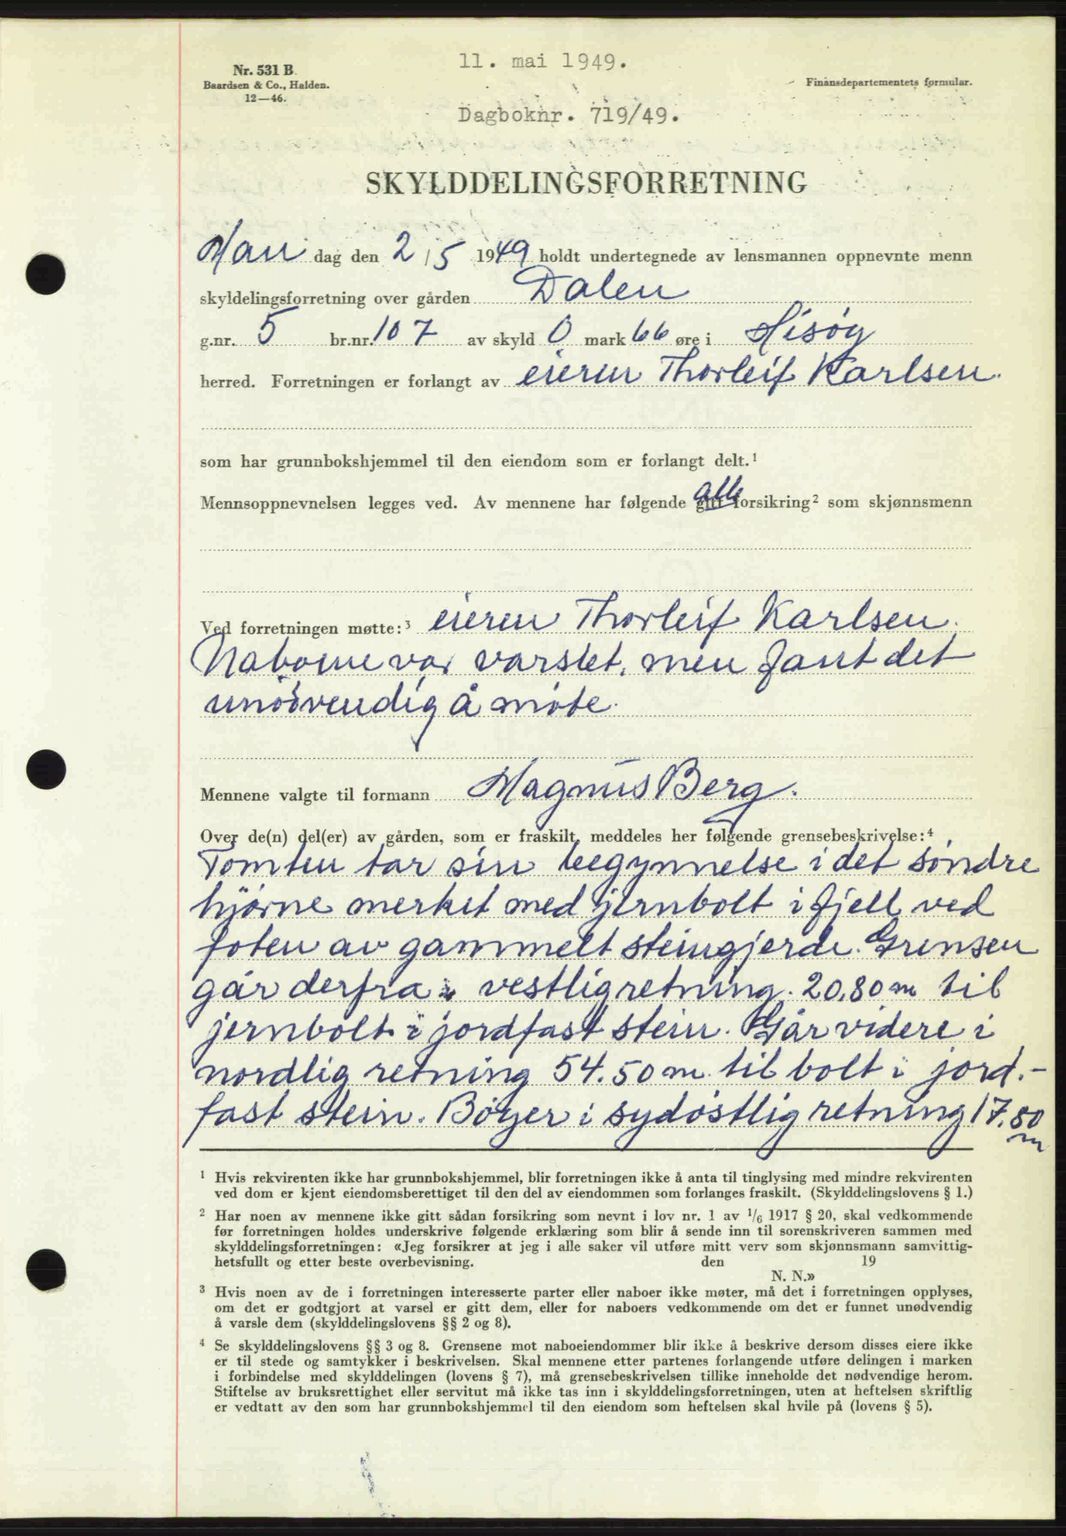 11. mai 1949.
Nr. 531 B.
Baardsen & Co., Halden.
12—46.
Finansdepartementets formular.
Dagboknr. 719/49.
SKYLDDELINGSFORRETNING
Man dag den 2/5 1949 holdt undertegnede av lensmannen oppnevnte menn
skyldelingsforretning over gården Dalen
g.nr. 5 br.nr. 107 av skyld 0 mark 66 øre i Hisøy
herred. Forretningen er forlangt av eieren Thorleif Karlsen.
som har grunnbokshjemmel til den eiendom som er forlangt delt.¹
Mennsoppnevnelsen legges ved. Av mennene har følgende alle forsikring² som skjønnsmenn
Ved forretningen møtte:³ eieren Thorleif Karlsen.
Naboene var varslet, men fant det
unödvendig å möte.
Mennene valgte til formann Magnus Berg.
Over de(n) del(er) av gården, som er fraskilt, meddeles her følgende grensebeskrivelse:⁴
Tomten tar sin begynnelse i det söndre
hjörne merket med jernbolt i fjell ved
foten av gammelt steingjerde. Grensen
går derfra i vestlig retning 20.80 m til
jernbolt i jordfast stein. Går videre i
nordlig retning 54.50 m til bolt i jord.-
fast stein. Böyer i sydöstlig retning 17.50
m
¹ Hvis rekvirenten ikke har grunnbokshjemmel, blir forretningen ikke å anta til tinglysing med mindre rekvirenten
ved dom er kjent eiendomsberettiget til den del av eiendommen som forlanges fraskilt. (Skylddelingslovens § 1.)
² Har noen av mennene ikke gitt sådan forsikring som nevnt i lov nr. 1 av 1/6 1917 § 20, skal vedkommende
før forretningen holdes underskrive følgende erklæring som blir å sende inn til sorenskriveren sammen med
skylddelingsforretningen: «Jeg forsikrer at jeg i alle saker vil utføre mitt verv som skjønnsmann samvittig-
hetsfullt og etter beste overbevisning. den 19
N. N.»
³ Hvis noen av de i forretningen interesserte parter eller naboer ikke møter, må det i forretningen opplyses,
om det er godtgjort at varsel er gitt dem, eller for naboers vedkommende om det er funnet unødvendig
å varsle dem (skylddelingslovens §§ 2 og 8).
⁴ Se skylddelingslovens §§ 3 og 8. Grensene mot naboeiendommer blir ikke å beskrive dersom disses eiere ikke
er til stede og samtykker i beskrivelsen. Skal mennene etter partenes forlangende utføre delingen i marken
i forbindelse med skylddelingen (lovens § 7), må grensebeskrivelsen tillike inneholde det nødvendige herom.
Stiftelse av bruksrettighet eller servitut må ikke tas inn i skylddelingsforretningen, uten at heftelsen skriftlig
er vedtatt av den som har grunnbokshjemmel til den eiendom som heftelsen skal hvile på (lovens § 5).